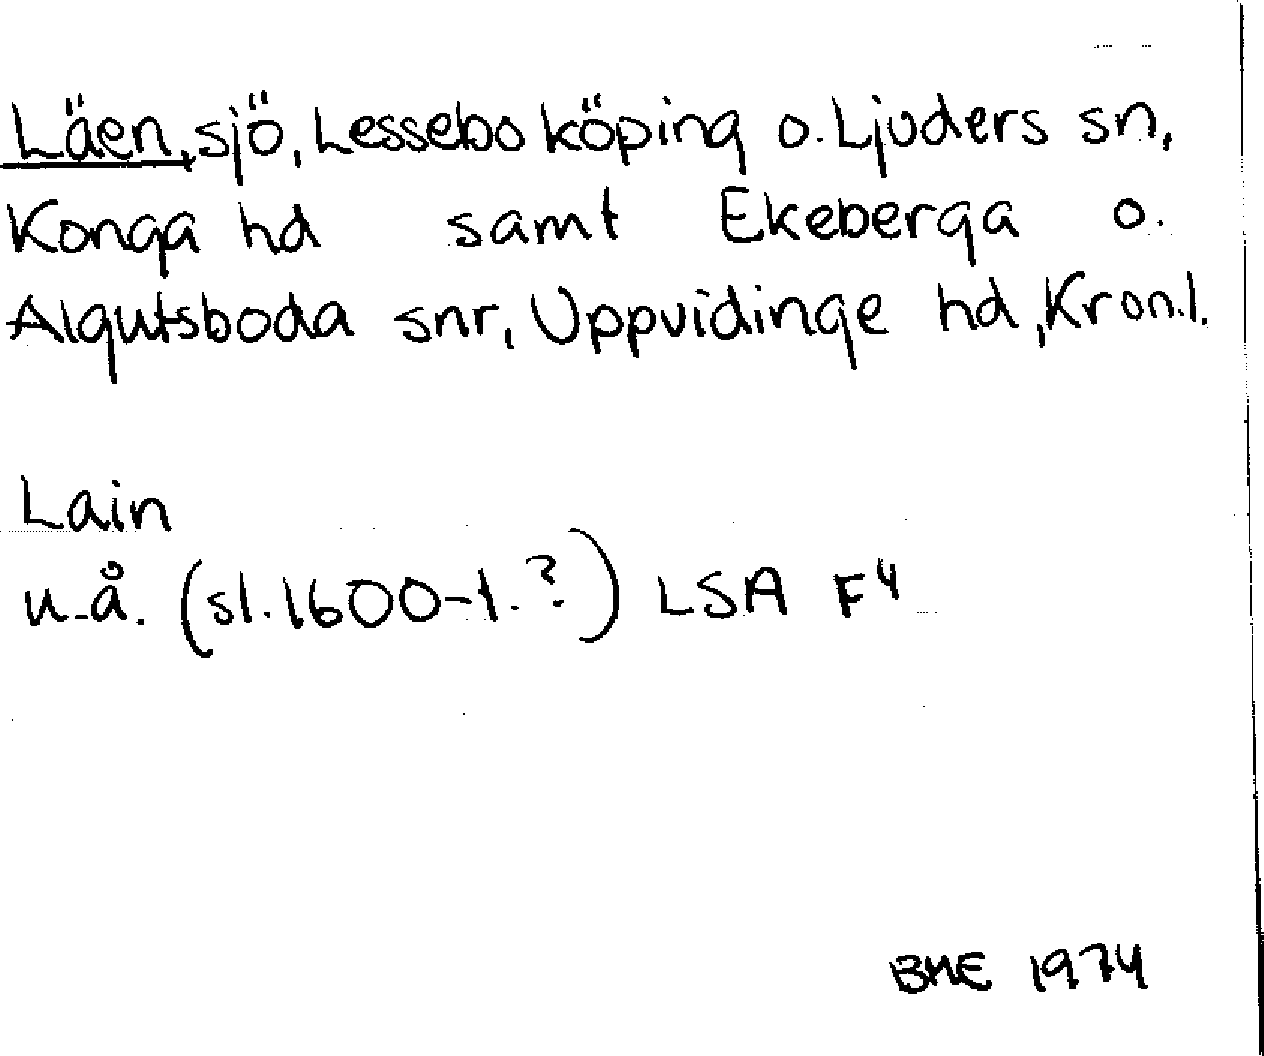 Läen, sjö, Lessebo köping o. Ljuders sn,
Konga hd samt Ekeberga o.
Algutsboda snr, Uppvidinge hd, Kron.l.
Lain
u.å. (sl. 1600-t.?) LSA F4
BME 1974